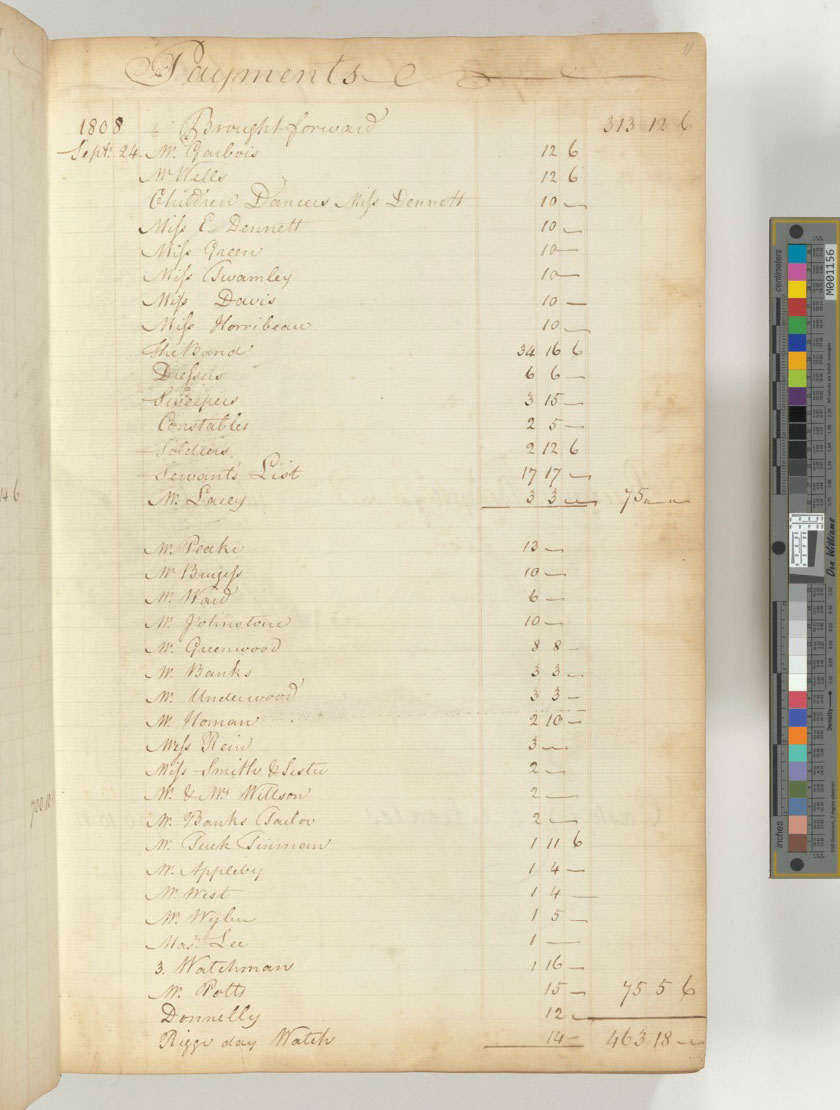 11
Payments
1808 Brought forward 313 12 6
Sept. 24 Mr. Garbois 12 6
Mr Wells 12 6
Children Dancers Miss Dennett 10 —
Miss E. Dennett 10 —
Miss Green 10 —
Miss Twamley 10 —
Miss Davis 10 —
Miss Horribeau 10 —
The Band 34 16 6
Dressers 6 6 —
Sweepers 3 15 —
Constables 2 5 —
Soldiers 2 12 6
Servants List 17 17 —
Mr. Lacey 3 3 — 75 — —
Mr. Peake 13 —
Mr Burgess 10 —
Mr. Ward 6 —
Mr. Johnstone 10 —
Mr. Greenwood 8 8 —
Mr. Banks 3 3 —
Mr. Underwood 3 3 —
Mr. Homan 2 10 —
Miss Rein 3 —
Miss Smith & Sister 2 —
Mr. & Mrs Willson 2 —
Mr. Banks Tailor 2 —
Mr. Tuck Tinman 1 11 6
Mr. Appleby 1 4 —
Mr. West 1 4 —
Mr. 1 5 —
Mas. Lee 1 —
3. Watchman 1 16 —
Mr. Potts 15 — 75 5 6
Donnelly 12 —
Riggs day Watch 14 — 463 18 —
14 6
700 10
centimeters
M001156
Don Williams
Density
inches